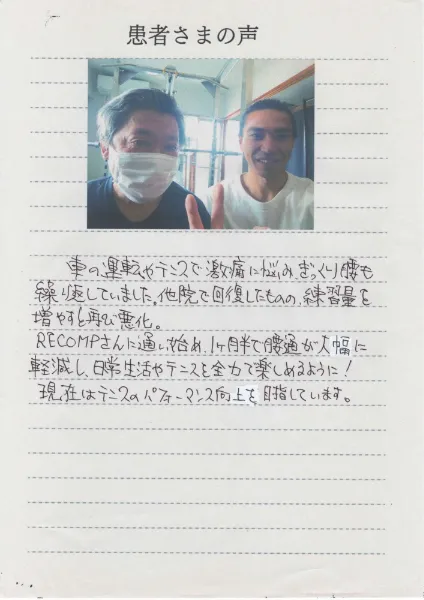 患者さまの声
車の運転やテニスで激痛に悩み、ぎっくり腰も
繰り返していました。他院で回復したものの、練習量を
増やすと再び悪化。
RECOMPさんに通い始め、1ヶ月半で腰痛が大幅に
軽減し、日常生活やテニスを全力で楽しめるように!
現在はテニスのパフォーマンス向上を目指しています。